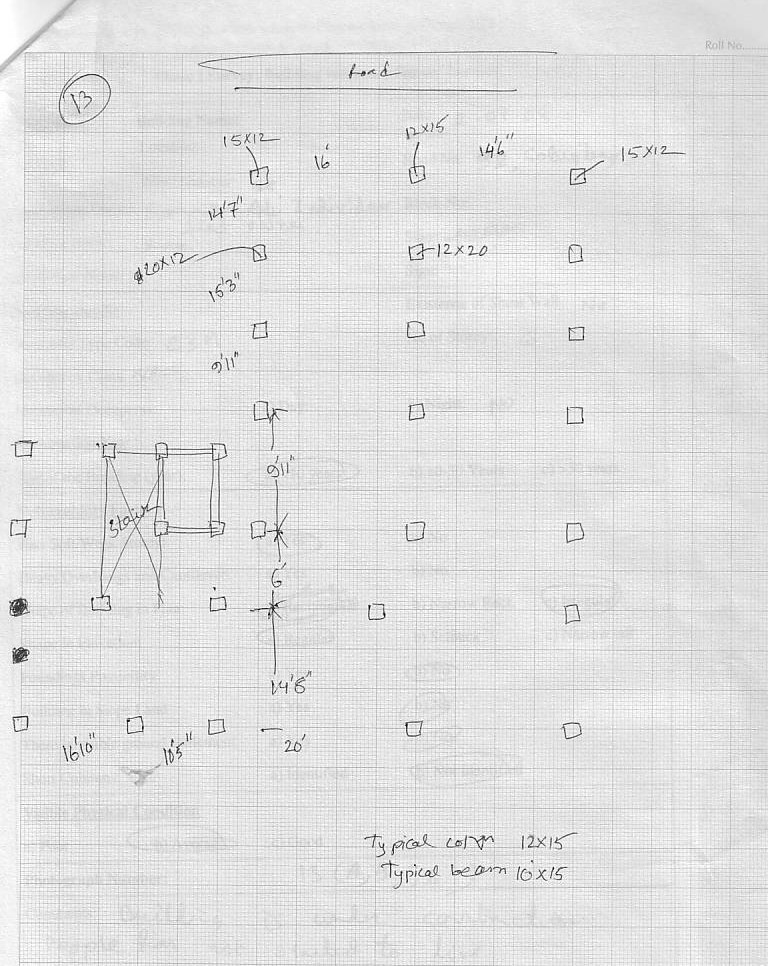 Roll No.
Road
13
15X12
16'
12X15
14'6"
15X12
14'7"
20X12
12X20
15'3"
9'11"
9'11"
Stair
6'
14'8"
16'10"
10'5"
20'
Typical column 12X15
Typical beam 10X15